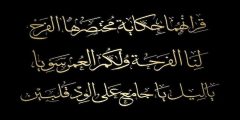 قرانهما حكاية مختصرها الفرح
لنا الفرحة ولكم العمر سويا
ياليل يا جامع على الود قلبين